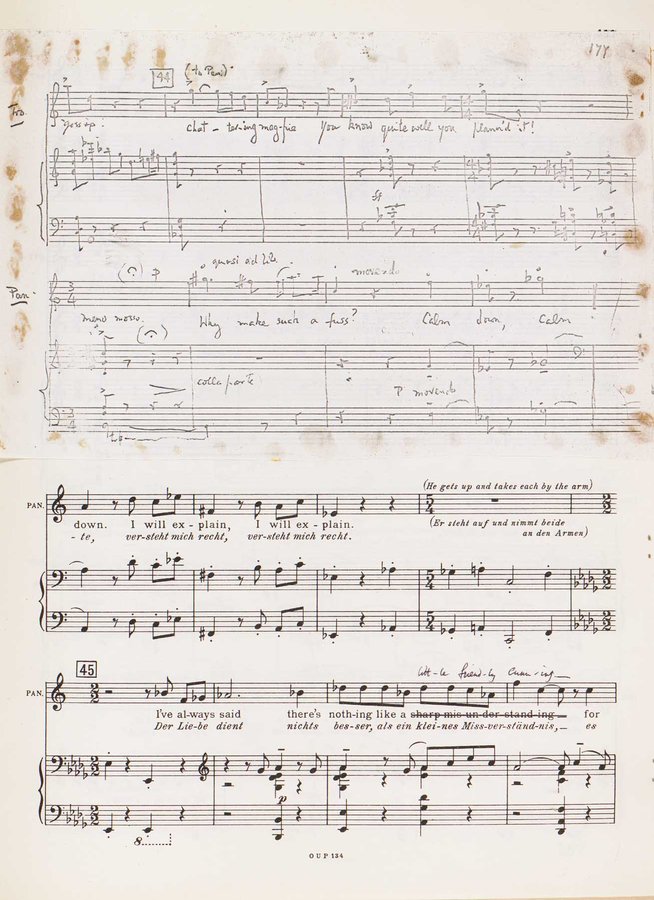 177
44 (to Pan)
Tro.
gossip! chat-tering mag-pie You know quite well you plann'd it!
ff
quasi ad lib. movendo
Pan.
p
meno mosso. Why make such a fuss? Calm down, Calm
colla parte
p movendo
(He gets up and takes each by the arm)
PAN.
down. I will ex-plain, I will ex-plain. (Er steht auf und nimmt beide
-te, versteht mich recht, ver-steht mich recht. an den Armen)
45
lit-le friend-ly
PAN.
I've al-ways said there's noth-ing like a sharp mis-un-der-stand-ing for
Der Lie-be dient nichts bes-ser, als ein klei-nes Miss-ver-ständ-nis, es
p
8
O U P 134